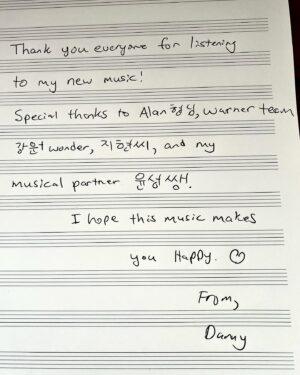 Thank you everyone for listening
to my new music!
Special thanks to Alan형님, Warner team
강원 wonder, 지현씨, and my
musical partner 윤성쌤.
I hope this music makes
you Happy. ♡
From,
Danny